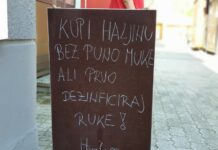 KUPI HALJINU
BEZ PUNO MUKE
ALI PRVO
DEZINFICIRAJ
RUKE!